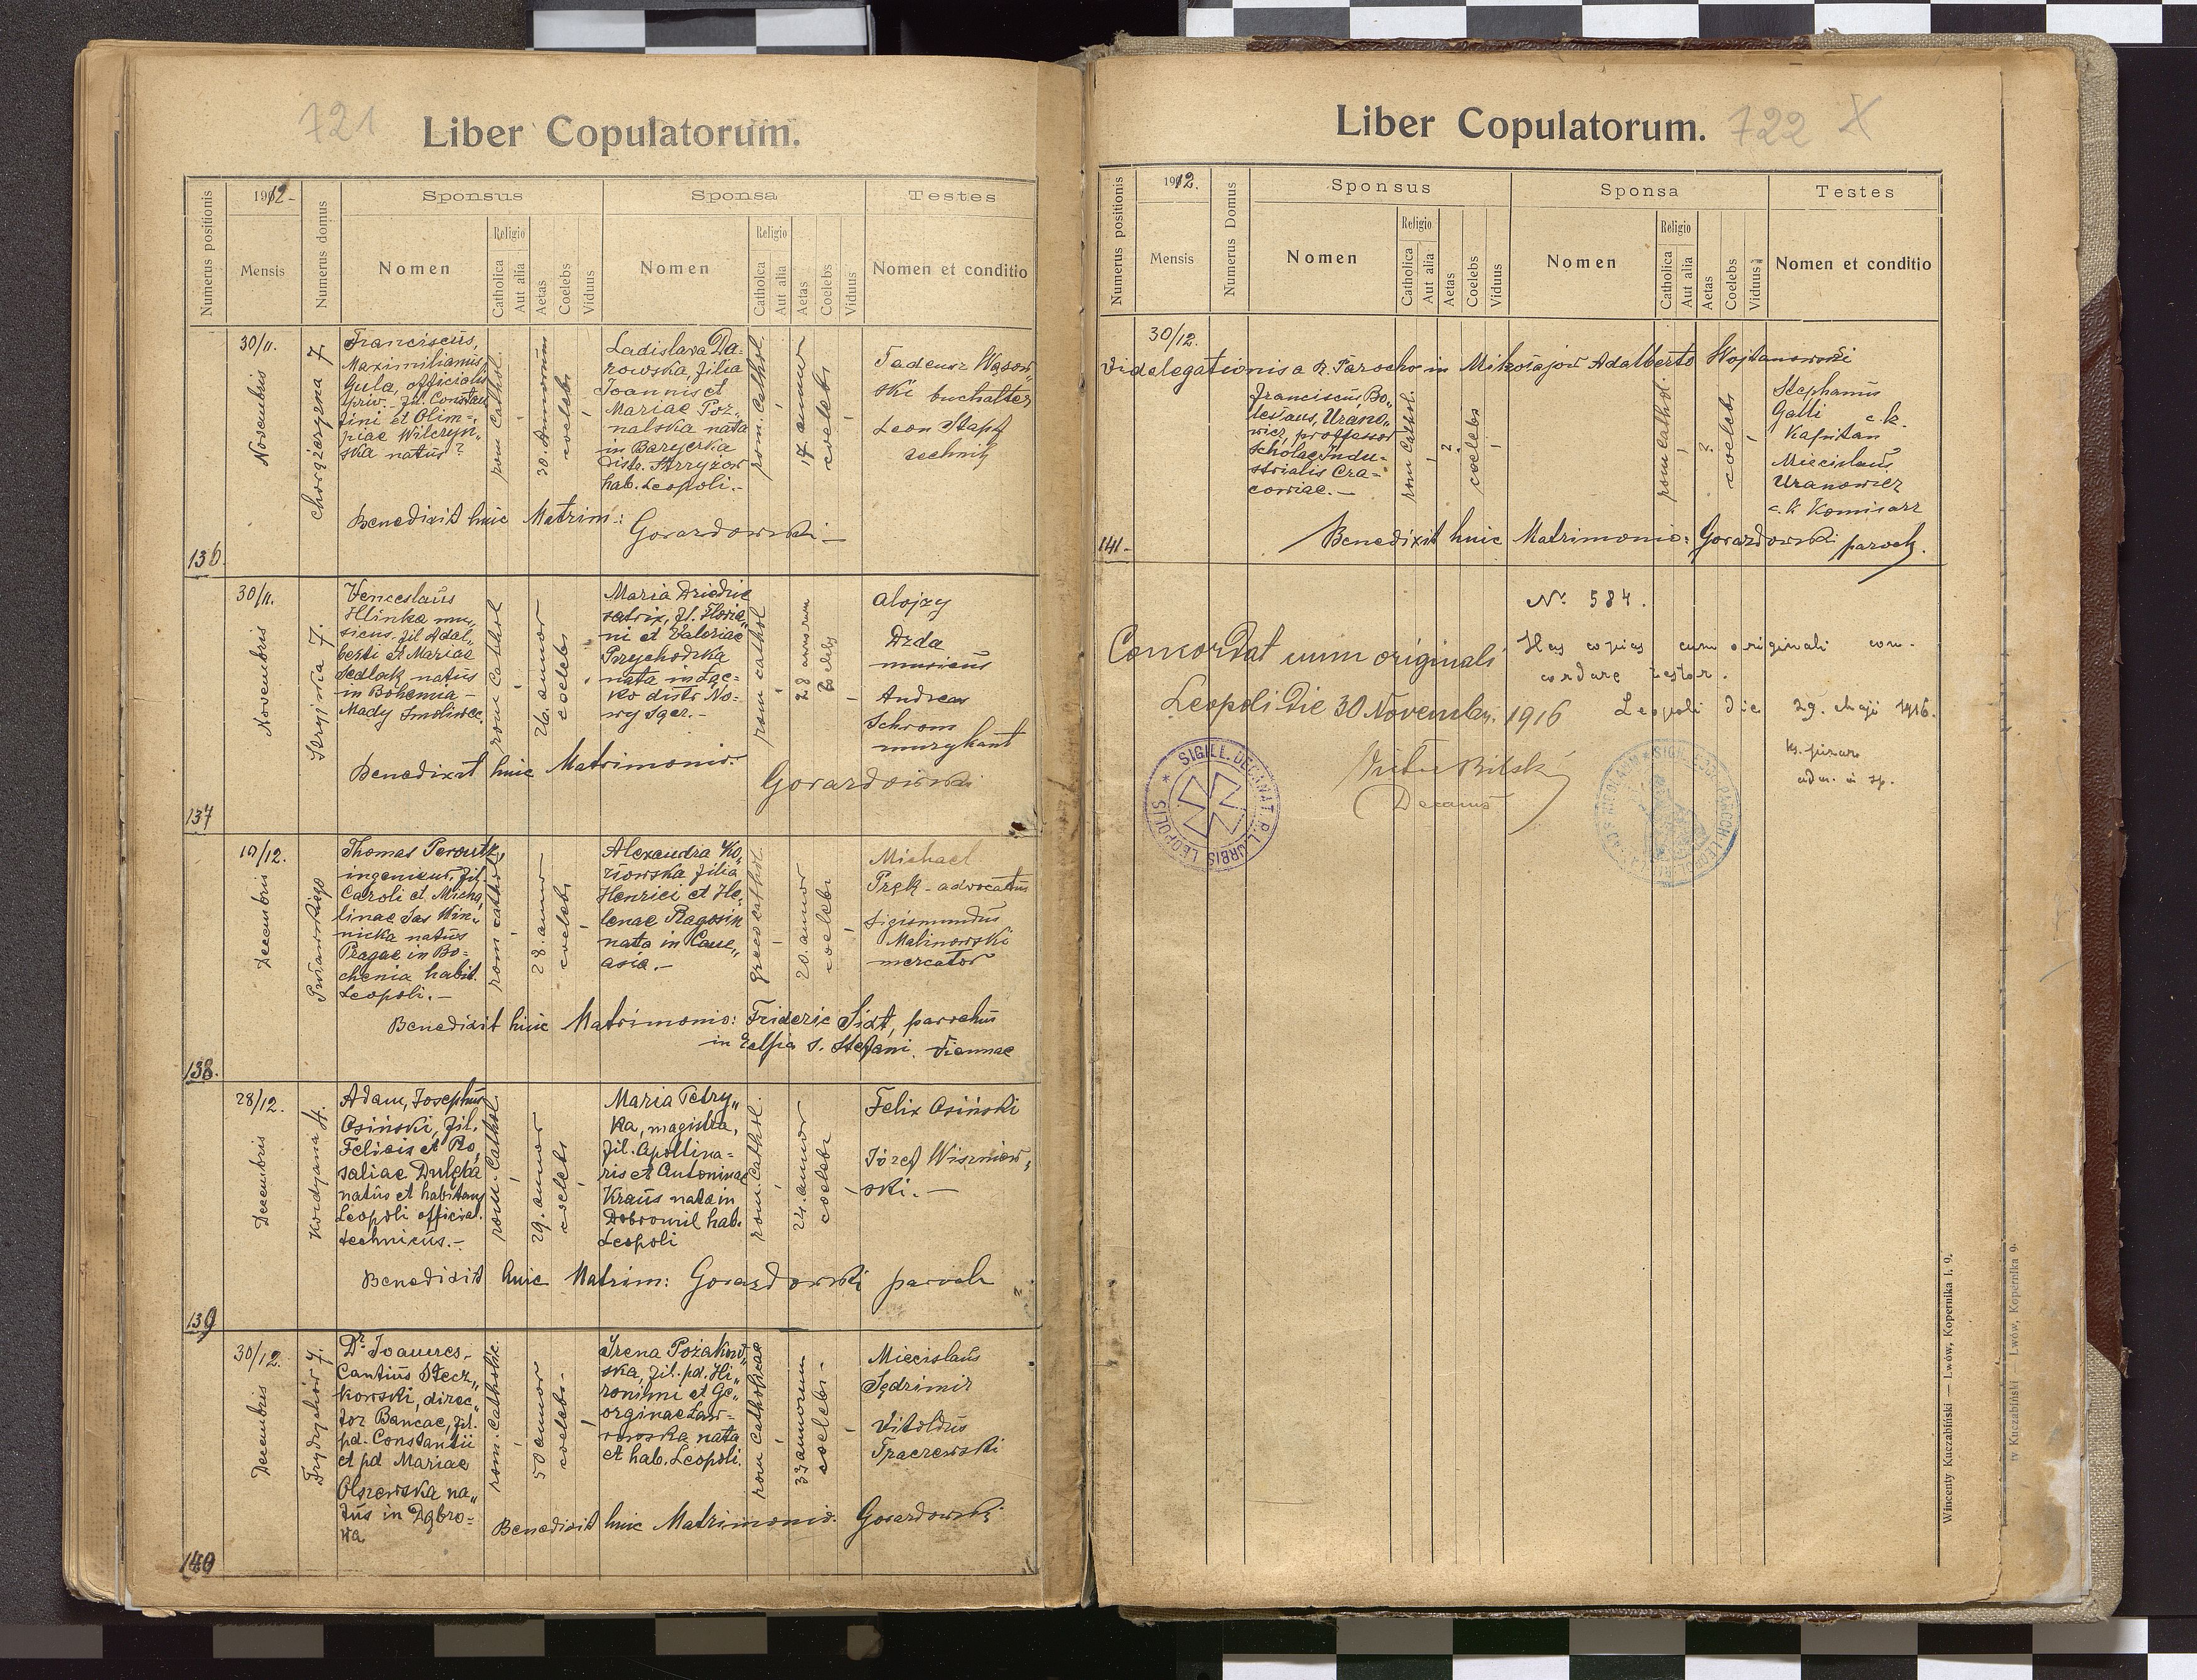 721
Liber Copulatorum.
Numerus positionis
1912-
Mensis
Numerus domus
Sponsus
Nomen
Religio
Catholica
Aut alia
Aetas
Coelebs
Viduus
Sponsa
Nomen
Religio
Catholica
Aut alia
Aetas
Coelebs
Viduus
Testes
Nomen et conditio
136
30/11.
Novembris
Chorążczyzna 7.
Franciscus,
Maximilianus
Gula, officialis
priv. fil. Constan
tini et Olim-
piae Wilczyn„
ska natus?
rom Cathol.
30. annorum
coelebs
Ladislava Da-
rowska filia
Joannis et
Mariae Poz-
nalska nata
in Baryczka
distr. Strzyżow
hab. Leopoli.-
rom. Cathol.
17 annor
coelebs
Tadeusz Wąsow„
ski buchalter
Leon Stapf
technik
Benedixit huic Matrim.: Gorazdowski —
137
30/11.
Novembris
Stryjska 7.
Venceslaus
Hlinka mu„
sicus. fil Adal„
berti et Mariae
Sedlak natus
in Bohemia -
Mady Smoliwec.
rom Cathol
26. annor
coelebs
Maria Dziedzic
satrix, fl. Floria„
ni et Valeriae
Przychodzka
nata in Łąc-
ko distr No-
wy Sącz.-
rom cathol
28 annorum
coelebs
Alojzy
Dzda
musicus
Andreas
Schrom
muzykant
Benedixit huic Matrimonio: Gorazdowski
138.
19/12.
Decembris
Pułaskiego
Thomas Peroutka
ingenieur, fil.
Caroli et Micha„
linae Sas Win-
nicka natus
Pragae in Bo-
chenia habit.
Leopoli.-
rom cathol
28. annor
coelebs
Alexandra Ko„
złowska filia
Henrici et He„
lenae Ragosin
nata in Cauc„
asia.-
greco cathol.
20. annor
coelebs
Michael
Pręk - advocatus
Sigismundus
Malinowski
mercator
Benedixit huic Matrimonio: Frideric Sixt, parochus
in Eclsia S. Stefani. Viennae
139
28/12.
Decembris
Kordyana 4.
Adam, Josephus
Osiński, fil.
Felicis et Ro„
saliae Dulęba
natus et habitans
Leopoli official.
technicus.-
rom. Cathol
29. annor
coelebs
Maria Petry„
ka, magistra,
fil. Apollina=
ris et Antoninae
Kraus nata in
Dobromil hab.
Leopoli
rom. Cathol.
24. annor
coelebs
Felix Osiński
Józef Wiszniew„
ski.-
Benedixit huic Matrim: Gorazdowski paroch
140
30/12.
Decembris
Frydrychów 7.
Dr Joannes-
Cantius Stecz„
kowski, direc„
tor Bancae, fil.
pd. Constantii
et pd Mariae
Olszewska na„
tus in Dąbro=
wa
rom. Catholic.
50 annor
coelebs-
Irena Pożakow„
ska, fil. pd. Hi„
ronimi et Ge„
orginae Ław=
rowska nata
et hab. Leopoli.
rom Catholicae
33 annorum
coelebs-
Miecislaus
Sędzimir
Vitoldus
Traczewski
Benedixit huic Matrimonio: Gorazdowski
Liber Copulatorum.
722 X
Numerus positionis
1912.
Mensis
Numerus Domus
Sponsus
Nomen
Religio
Catholica
Aut alia
Aetas
Coelebs
Viduus
Sponsa
Nomen
Religio
Catholica
Aut alia
Aetas
Coelebs
Viduus
Testes
Nomen et conditio
141-
30/12.
Vi delegationis a R. Parocho in Mikołajow Adalberto Wojtanowski
Franciscus Bo„
leslaus, Urano„
wicz, proffessor
Scholae Indu-
strialis Cra-
coviae.-
rom Cathol.
?
coelebs
rom cathol.
?
coelebs
Stephanus
Galli c.k.
Kapitan
Miecislaus
Uranowicz
c. k Komisarz
Benedixit huic Matrimonio: Gorazdowski paroch.
Concordat cum originali
Leopoli Die 30 Novembr. 1916
Decanus
SIGILL. DECANAT. R. L. URBIS LEOPOLIS
No. 584.
Has copias cum originali con-
cordare testor.
Leopoli die 29. Maji 1916.
Wincenty Kuczabiński — Lwów, Kopernika l. 9.
ty Kuczabiński Lwów, Kopernika 9.